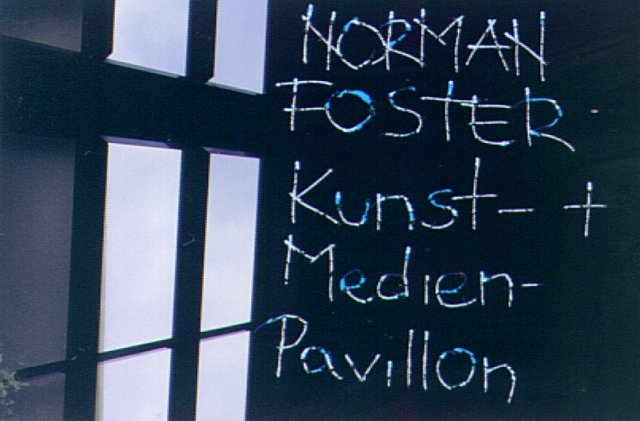 NORMAN
FOSTER
Kunst- +
Medien-
Pavillon